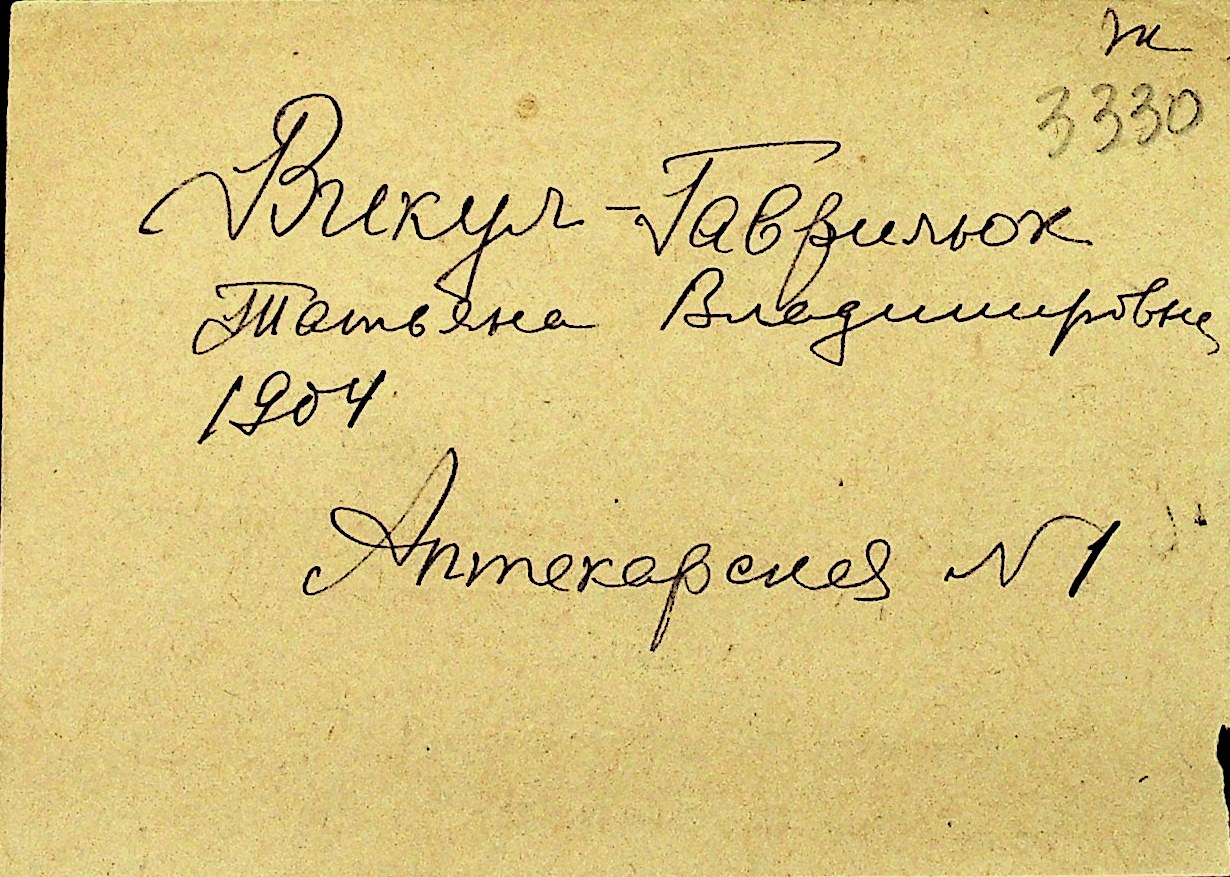 3330
Викул-Гаврилюк
Татьяна Владимировна
1904
Аптекарская N 1